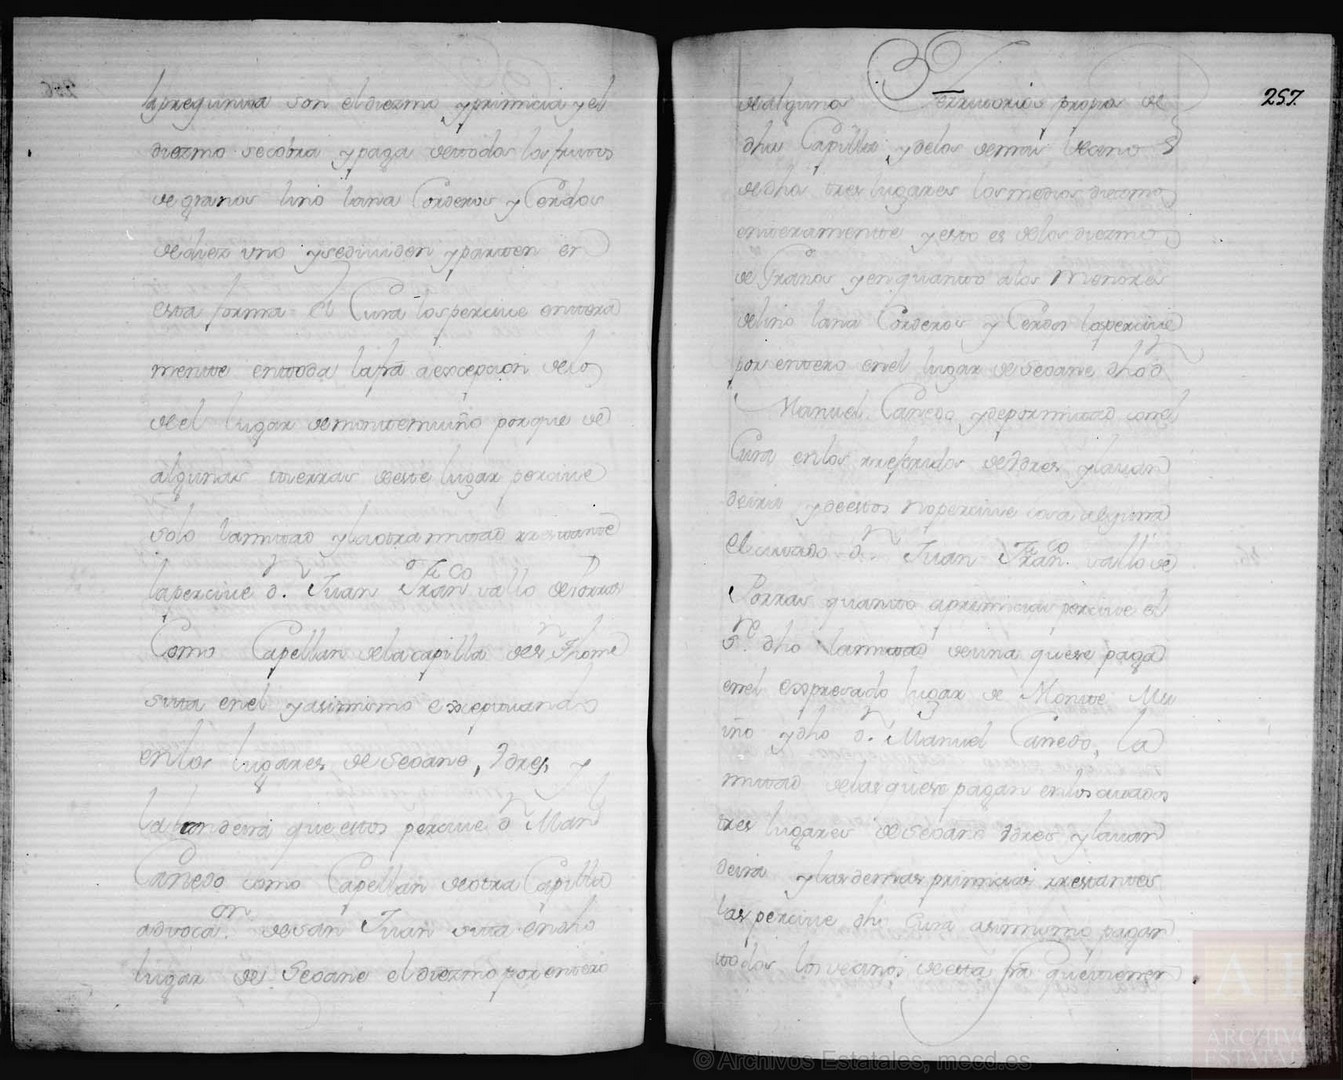 la pregunta son el diezmo y primicia y el
diezmo se cobra y paga de todos los frutos
de granos lino lana Corderos y Cerdos
de diez uno y se dividen y parten en
esta forma el Cura los percive entera
mente en toda la fra a excepcion de los
de el lugar de montemuiño porque de
algunas tierras de este lugar percive
solo la mitad y la otra mitad restante
la percive dn. Juan Franco vallo de Porras
Como Capellan de la capilla de sn Thome
sita en el y asimismo exceptuando
en los lugares de Seoane, Ydres, y
la bandeira que estos percive dn Manl
Canedo como Capellan de otra Capilla
advocaon. de San Juan sita en dho
lugar de Seoane el diezmo por entero
257.
de algunos territorios propios de
dha Capilla y de los demas vecinos
de dhos tres lugares los medios diezmos
enteramente y esto es de los diezmos
de Granos y en quanto a los Menores
de lino lana Corderos y Cerdos la percive
por entero en el lugar de Seoane dho dn
Manuel Canedo y de por mitad con el
Cura en los referidos de Ydres y lavan
deira y de estos no percive cosa alguna
el citado dn. Juan Franco. vallo de
Porras quanto a primicias percive el
dho la mitad de una que se paga
en el expresado lugar de Monte Mu
iño y dho dn. Manuel Canedo, la
mitad de las que se pagan en los citados
tres lugares de Seoane Ydres y lavan
deira y las demas primicias restantes
las percive dho Cura asimismo pagan
todos los vecinos de esta fra que tienen
© Archivos Estatales, mecd.es
ARCHIVOS